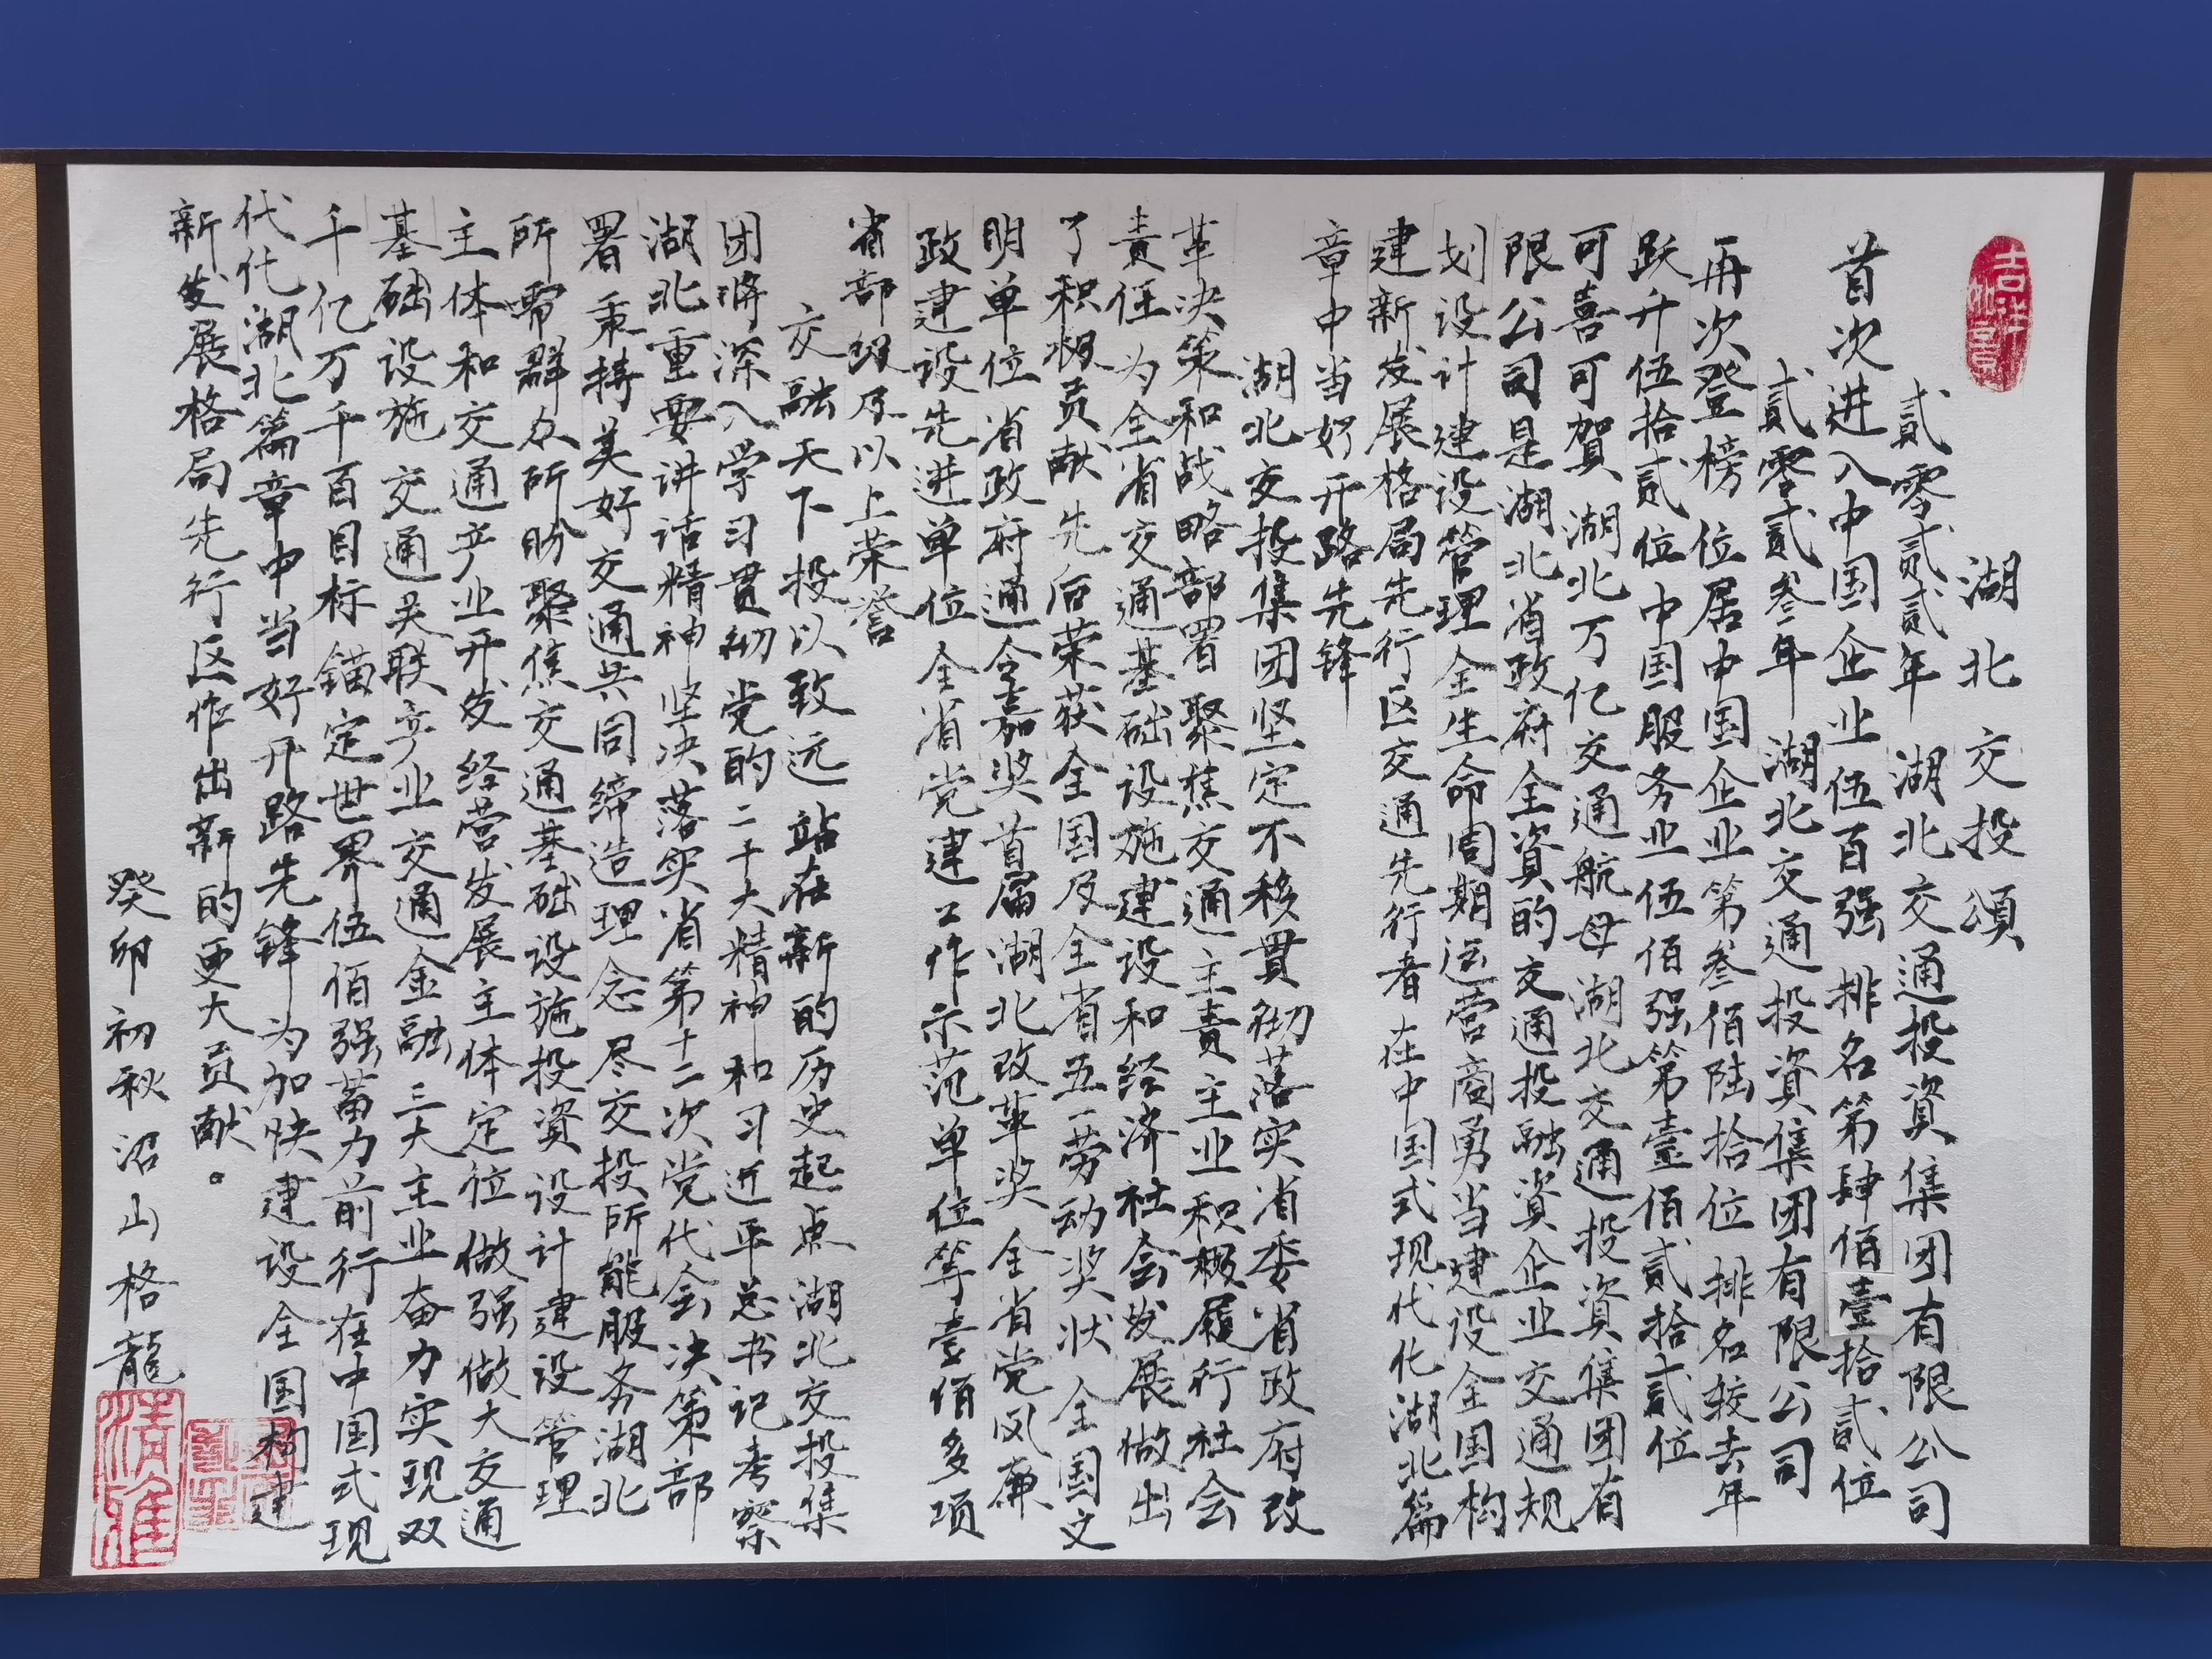 吉祥如意
湖北交投頌
貳零貳貳年 湖北交通投資集团有限公司
首次进入中国企业伍百强 排名第肆佰壹拾貳位
貳零貳叁年 湖北交通投資集团有限公司
再次登榜 位居中国企业第叁佰陆拾位 排名较去年
跃升伍拾貳位 中国服务业伍佰强第壹佰貳拾貳位
可喜可賀 湖北万亿交通航母湖北交通投資集团有
限公司是湖北省政府全資的交通投融資企业交通规
划设计建设管理全生命周期运营商勇当建设全国构
建新发展格局先行区交通先行者 在中国式现代化湖北篇
章中当好开路先锋
湖北交投集团坚定不移贯彻落实省委省政府改
革决策和战略部署 聚焦交通主责主业积极履行社会
责任 为全省交通基础设施建设和经济社会发展做出
了积极贡献 先后荣获全国及全省五一劳动奖状 全国文
明单位 省政府通令嘉奖 首届湖北改革奖 全省党风廉
政建设先进单位 全省党建工作示范单位等壹佰多项
省部级及以上荣誉
交融天下 投以致远 站在新的历史起点 湖北交投集
团将深入学习贯彻党的二十大精神和习近平总书记考察
湖北重要讲话精神 坚决落实省第十二次党代会决策部
署 秉持美好交通共同缔造理念 尽交投所能服务湖北
所需群众所盼 聚焦交通基础设施投資设计建设管理
主体和交通产业开发经营发展主体定位 做强做大交通
基础设施 交通关联产业 交通金融三大主业 奋力实现双
千亿万千百目标 锚定世界伍佰强蓄力前行 在中国式现
代化湖北篇章中当好开路先锋 为加快建设全国构建
新发展格局先行区作出新的更大贡献。
癸卯初秋沼山格龍
清雅